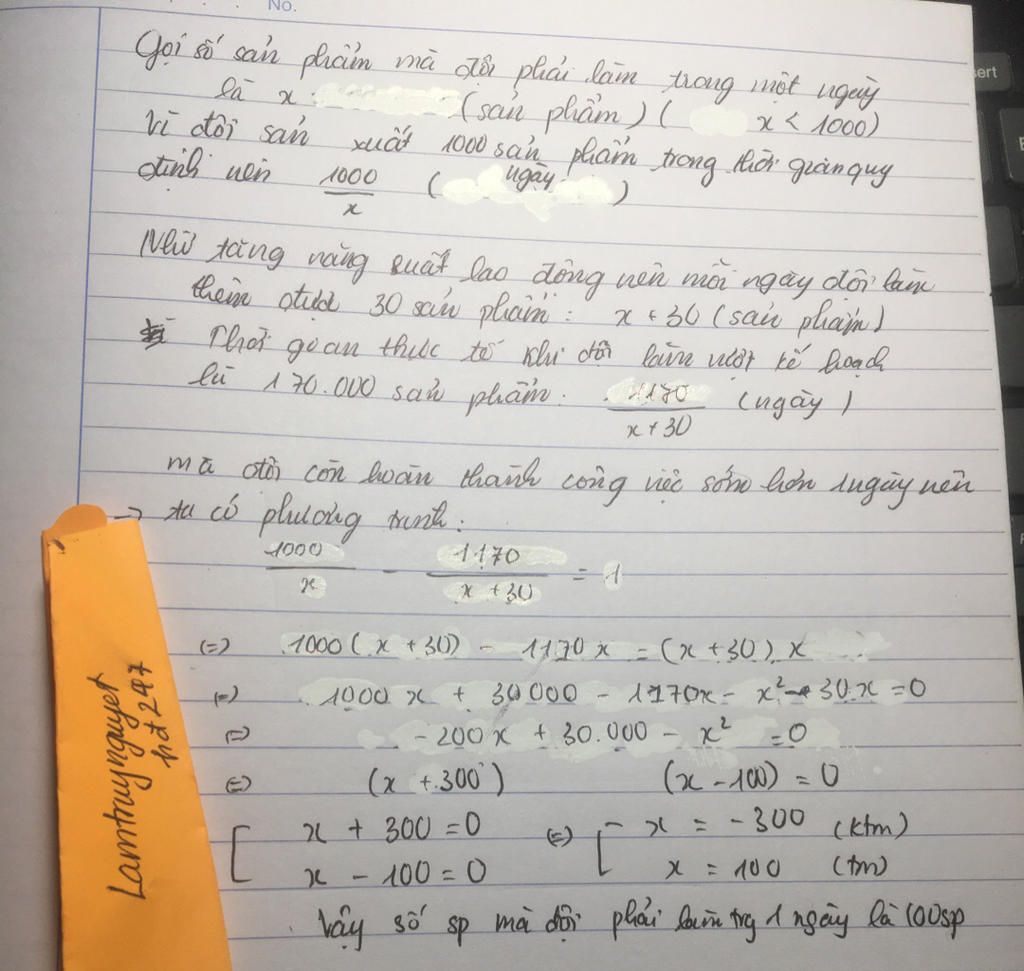 No.
Gọi số sản phẩm mà đội phải làm trong một ngày
là x (sản phẩm) ( x < 1000)
Vì đội sản xuất 1000 sản phẩm trong thời gian quy
định nên 1000/x (ngày)
Nhờ tăng năng suất lao động nên mỗi ngày đội làm
thêm được 30 sản phẩm: x + 30 (sản phẩm)
Thời gian thực tế khi đội làm vượt kế hoạch
là 170.000 sản phẩm: 1170/(x + 30) (ngày)
mà đội còn hoàn thành công việc sớm hơn 1 ngày nên
→ ta có phương trình:
1000/x - 1170/(x + 30) = 1
(=) 1000(x + 30) - 1170x = (x + 30).x
(=) 1000x + 30000 - 1170x - x² - 30.x = 0
(=) -200x + 30.000 - x² = 0
(=) (x + 300) (x - 100) = 0
[ x + 300 = 0 (=) [ x = -300 (ktm)
x - 100 = 0 x = 100 (tm)
Vậy số sp mà đội phải làm trg 1 ngày là 100sp
Lamthuynguyet
hdt247